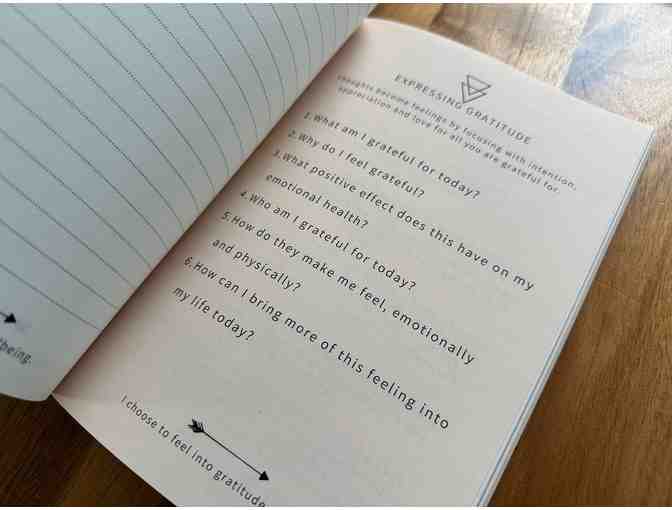 EXPRESSING GRATITUDE
thoughts become feelings by focusing with intention,
appreciation and love for all you are grateful for
1. What am I grateful for today?
2. Why do I feel grateful?
3. What positive effect does this have on my
emotional health?
4. Who am I grateful for today?
5. How do they make me feel, emotionally
and physically?
6. How can I bring more of this feeling into
my life today?
I choose to feel into gratitude